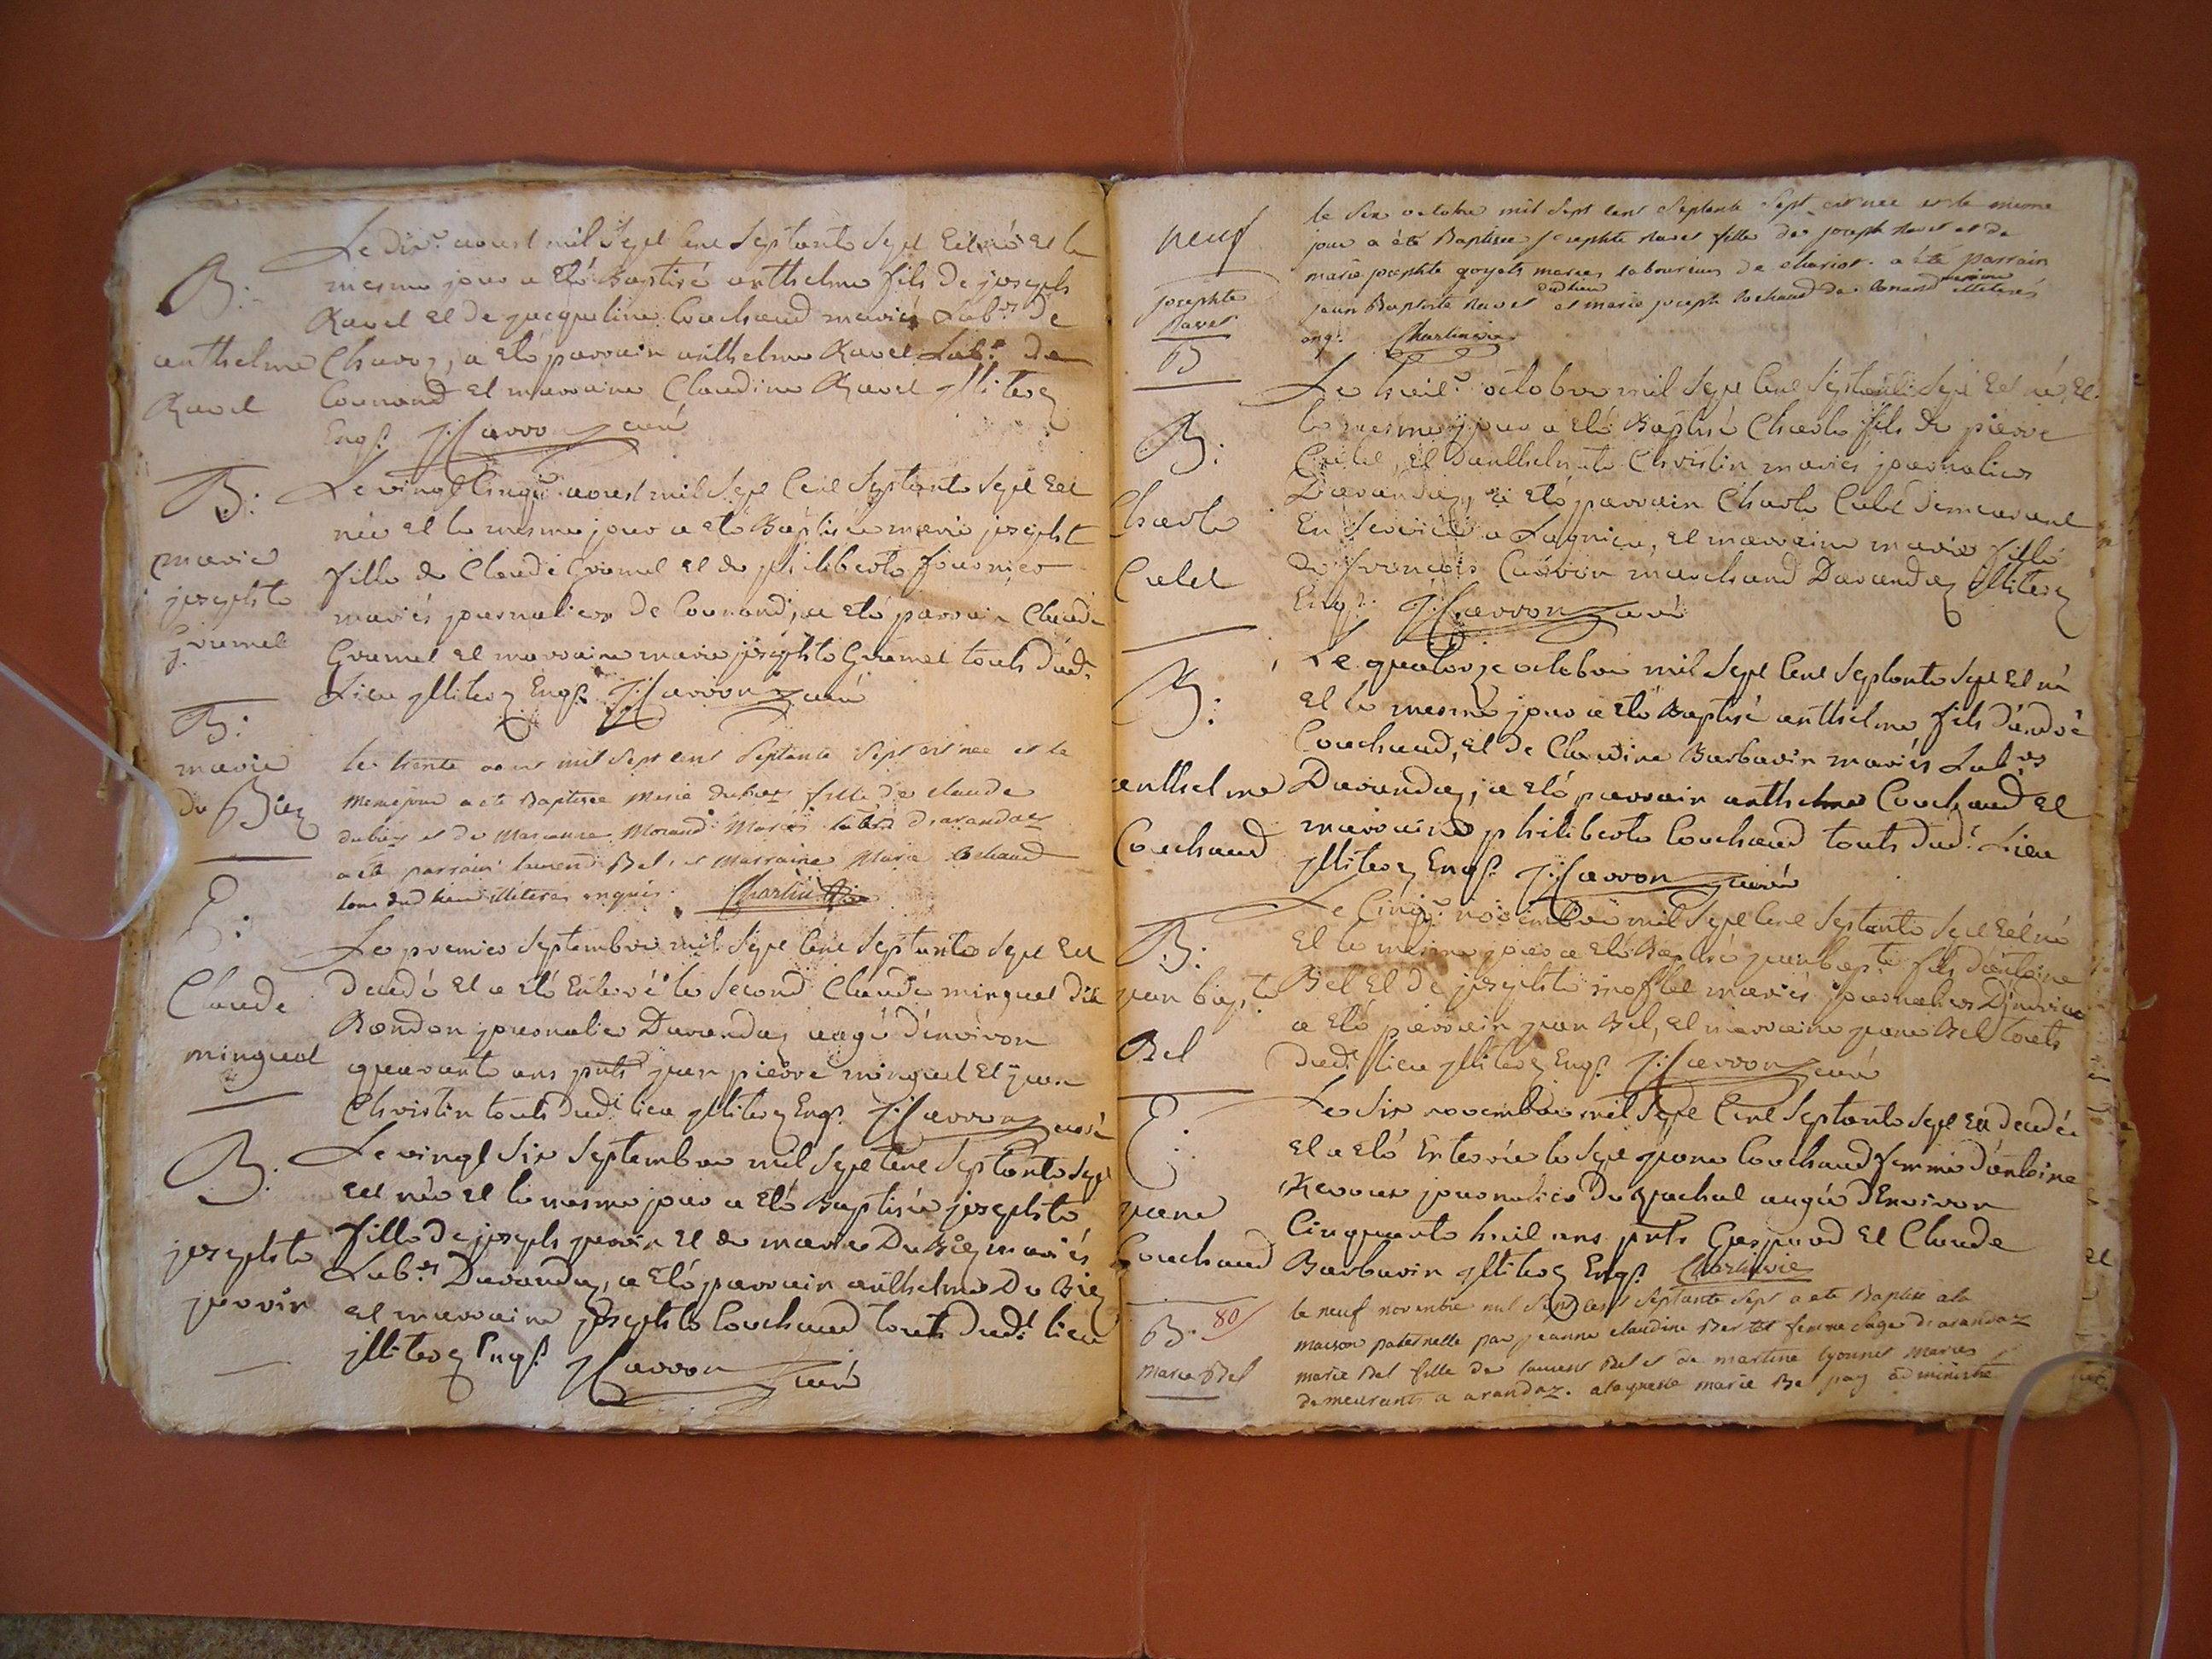 B:
anthelme
Ravel
Le dix.e aoust mil sept cent septante sept est né et le
mesme jour a eté Baptisé anthelme fils de joseph
Ravel et de jacqueline Couchaud mariés Lab.rs de
Charoz, a eté parrain anthelme Ravel Lab.r de
Counand et marraine Claudine Ravel illiterez
Enq.s J: Carron curé
B:
marie
josephte
Gramel
Le vingt cinq.e aoust mil sept cent septante sept est
née et le mesme jour a eté Baptisée marie josepht
fille de Claude Gramel et de philiberte fournier
mariés journalier de Counand, a eté parrain Claude
Gramel et marraine marie josephte Gramel touts dud.t
Lieu illiterez Enq.s J: Carron curé
B:
marie
du Biez
le trente aout mil sept cent septante sept est nee et le
meme jour a ete Baptisee Marie dubiez fille de claude
dubiez et de Morand Mariés labrs d'arandaz
a ete parrain laurend Bel, et marraine Marie Cochaud
tous dud lieu illiteres enquis.
E:
Claude
minguet
Le premier septembre mil sept cent septante sept est
decedé et a eté Enterré le second Claude minguet dit
Rondon journalier Darandaz aagé d'environ
quarante ans pnts jean pierre minguet et jean
Christin touts dud.t lieu illiterez Enq.s J: Carron curé
B:
josephte
perrin
Le vingt six septembre mil sept cent septante sept
est née et le mesme jour a eté Baptisée josephte
fille de joseph perrin et de marie Du Biez mariés
Lab.rs Darandaz, a eté parrain anthelme Du Biez
et marraine josephte Couchaud touts dud.t lieu
illiterez Enq.s J: Carron curé
neuf
josephte
Ravet
B
le six octobre mil sept cent septante sept est nee et le meme
jour a été Baptisee josephte Ravet fille de joseph Ravet et de
marie josephte goyet maries laboureurs de chariot. a été parrain
jean Baptiste Ravet dud lieu et marie joseph Cochaud de Conand illiterés
enq.
B:
Charle
Calet
Le huit.e octobre mil sept cent septante sept est né, et
le mesme jour a eté Baptisé Charle fils de pierre
Calet, et Danthelmete Christin mariés journalier
Darandaz, a eté parrain Charle Calet demeurant
En service a Lagnieu, et marraine marie fille
de françois Carron marchand Darandaz illiterez
Enq.s J: Carron curé
B:
anthelme
Couchaud
Le quatorze octobre mil sept cent septante sept est né
et le mesme jour a eté Baptisé anthelme fils d'andré
Couchaud, et de Claudine Barbarin mariés Lab.rs
Darandaz, a eté parrain anthelme Couchaud et
marraine philiberte Couchaud touts dud.t Lieu
illiterez Enq.s J: Carron curé
B:
jean bap.te
Bel
Le Cinq.e novembre mil sept cent septante sept est né
et le mesme jour a eté Baptisé jean bap.te fils d'antoine
Bel et de josephte mariés journalier
a eté parrain jean Bel, et marraine jeane Bel touts
dud.t lieu illiterez Enq.s J: Carron curé
E:
jeane
Couchaud
Le six novembre mil sept cent septante sept est decedée
et a eté Enterrée le sept jeane Couchaud femme d'antoine
journalier aagée d'Environ
Cinquante huit ans pnts Gaspard et Claude
Barbarin illiterez Enq.s
B. 80
Marie Bel
le neuf novembre mil sept cent septante sept a ete Baptise a la
maison paternelle par jeanne claudine femme sage d'arandaz
marie Bel fille de laurent Bel et de martine lyonnet maries
demeurants a arandaz. a laquelle marie Bel jay administré